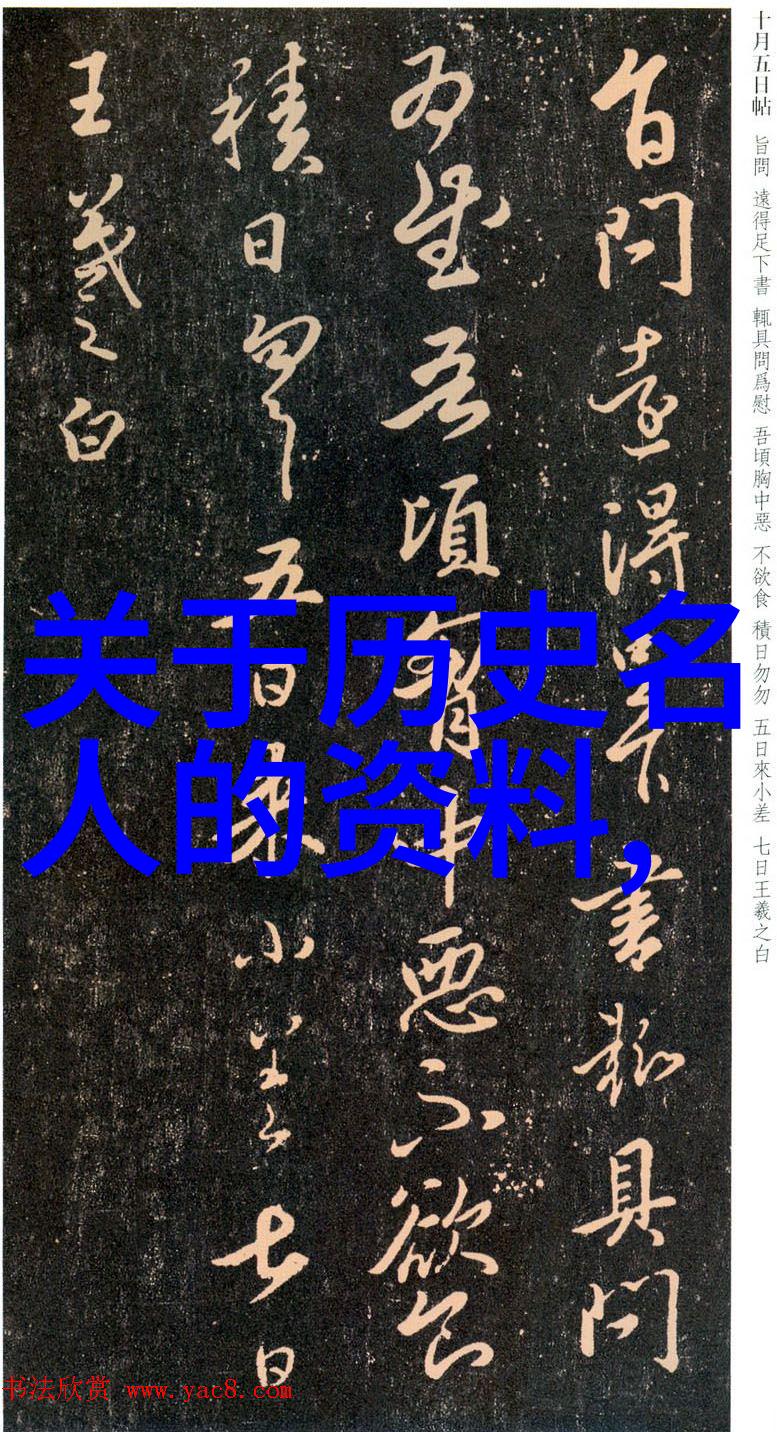 十月五日帖 旨問 遠得足下書 輒具問爲慰 吾頃胸中惡 不欲食 積日勿勿 五日來小差 七日王羲之白
旨問遠得足下書輒具問
爲慰吾頃胸中惡不欲食
積日勿勿五日來小差七日
王羲之白
关于历史名
人的资料,
书法欣赏 www.yac8.com